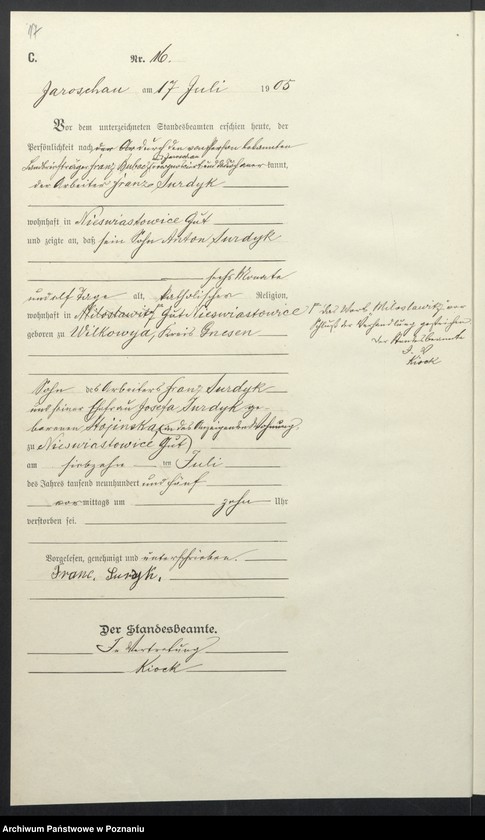 17
C.
Nr. 16.
Jaroschau am 17 Juli 1905
Vor dem unterzeichneten Standesbeamten erschien heute, der
Persönlichkeit nach durch den von Person bekannten
Franz kannt,
der Arbeiter Franz Surdyk
wohnhaft in Nieswiastowice Gut
und zeigte an, daß sein Sohn Anton Surdyk
sechs Monate
und elf Tage alt, katholischer Religion,
wohnhaft in Miloslawitz Gut Nieswiastowice
geboren zu Wilkowyja, Kreis Gnesen
Sohn des Arbeiters Franz Surdyk
und seiner Ehefrau Josefa Surdyk ge-
borenen Stojinska, in des Anzeigenden Wohnung,
zu Nieswiastowice Gut
am siebzehn ten Juli
des Jahres tausend neunhundert und fünf
vormittags um zehn Uhr
verstorben sei.
Vorgelesen, genehmigt und unterschrieben.
Franc. Surdyk.
Der Standesbeamte.
In Vertretung
Kiock
1) Das Wort "Miloslawitz" vor
Schluß der Verhandlung gestrichen
Der Standesbeamte
I. V.
Kiock
Archiwum Państwowe w Poznaniu